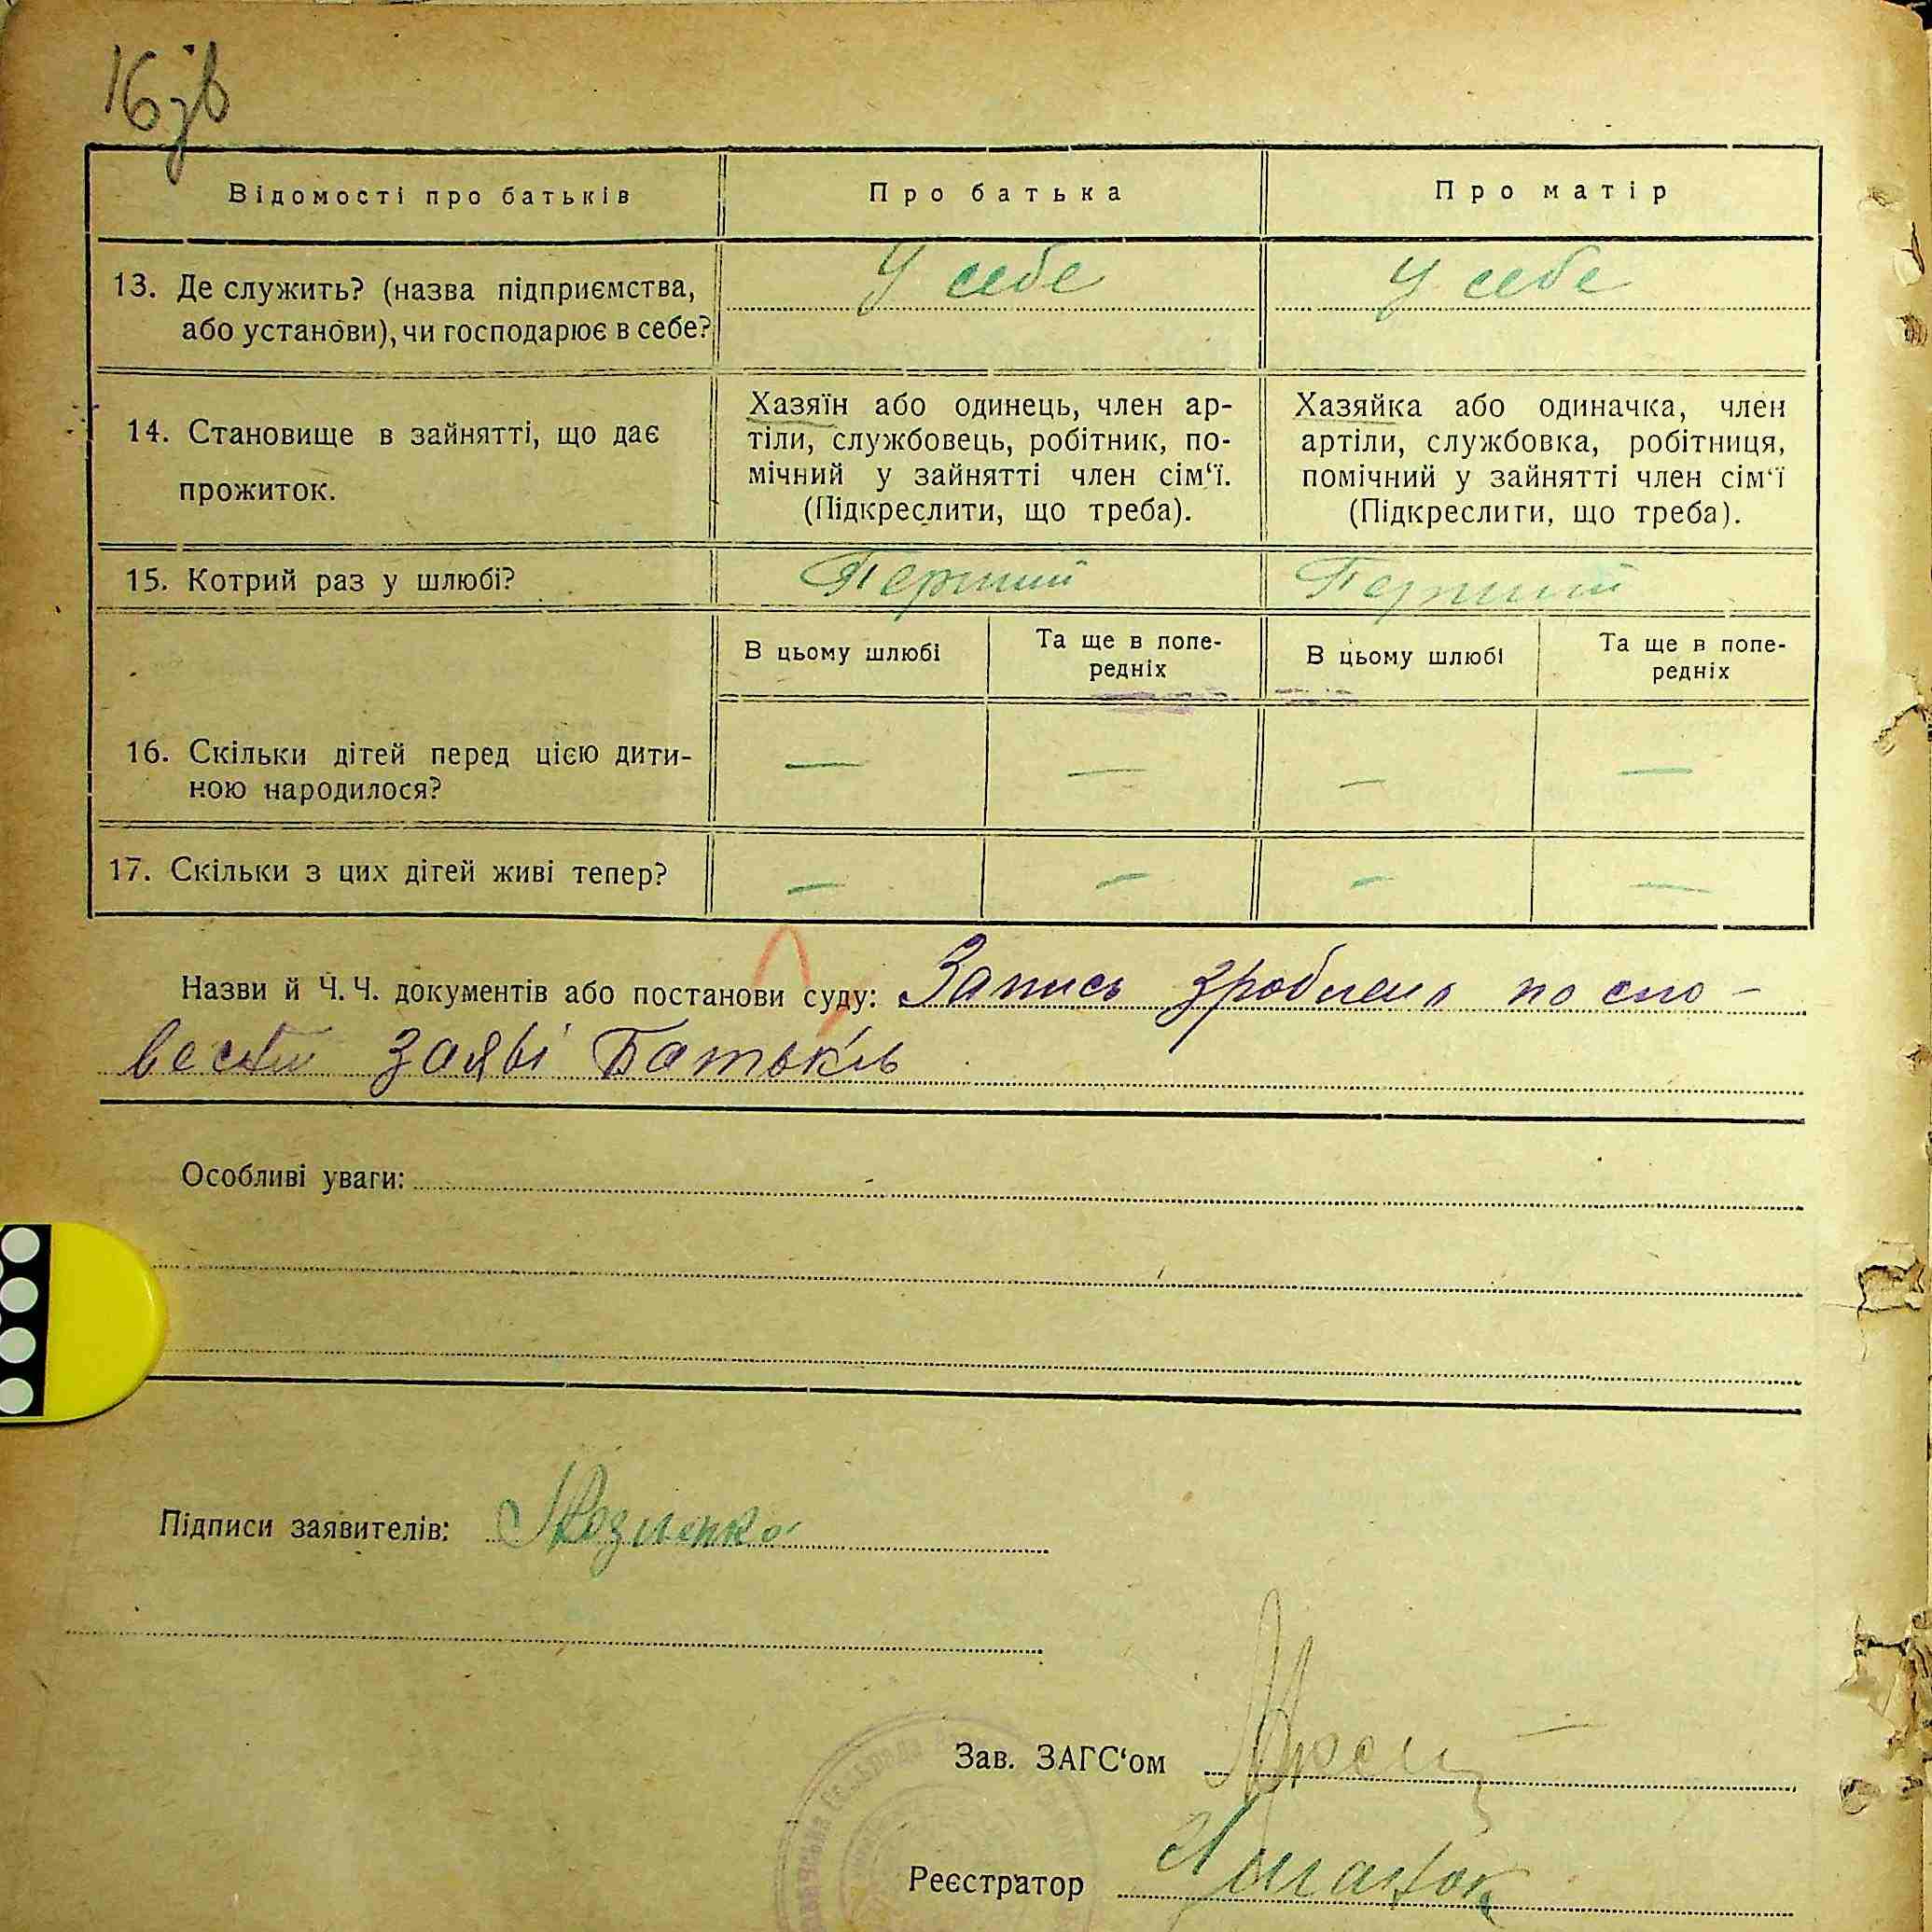 16зв
Відомості про батьків
Про батька
Про матір
13. Де служить? (назва підприємства,
або установи), чи господарює в себе?
У себе
У себе
14. Становище в зайнятті, що дає
прожиток.
Хазяїн або одинець, член ар-
тіли, службовець, робітник, по-
мічний у зайнятті член сім‘ї.
(Підкреслити, що треба).
Хазяйка або одиначка, член
артіли, службовка, робітниця,
помічний у зайнятті член сім‘ї
(Підкреслити, що треба).
15. Котрий раз у шлюбі?
Перший
Перший
В цьому шлюбі
Та ще в попе-
редніх
В цьому шлюбі
Та ще в попе-
редніх
16. Скільки дітей перед цією дити-
ною народилося?
— — — —
17. Скільки з цих дітей живі тепер?
— — — —
Назви й Ч. Ч. документів або постанови суду: Запись зроблена по сло-
заяві Батьків
Особливі уваги:
Підписи заявителів:
Зав. ЗАГС‘ом
Реєстратор